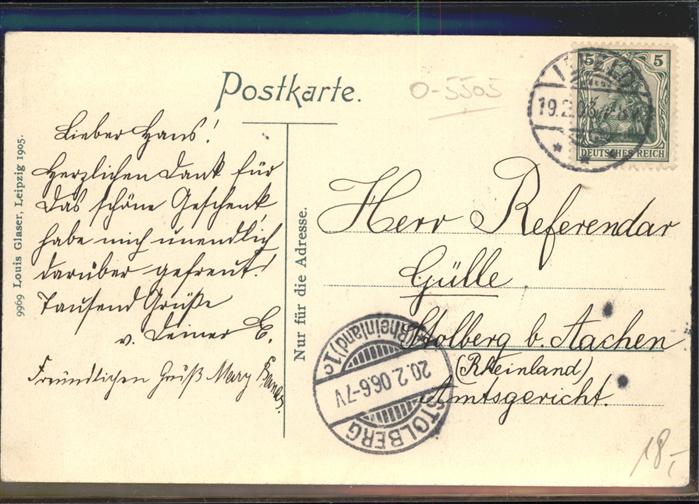 Postkarte.
O-5505
5 5
DEUTSCHES REICH
19.2.06
Lieber Hans!
Herzlichen Dank für
das schöne Geschenk
habe mich unendlich
darüber gefreut!
Tausend Grüße
v. Deiner E.
Freundlichen Gruß Mary
9969 Louis Glaser, Leipzig 1905.
Nur für die Adresse.
Herr Referendar
Gülle
Stolberg b. Aachen
(Rheinland)
Amtsgericht.
(Rheinland) 1c
20.2.06.6-7V
STOLBERG
18,-